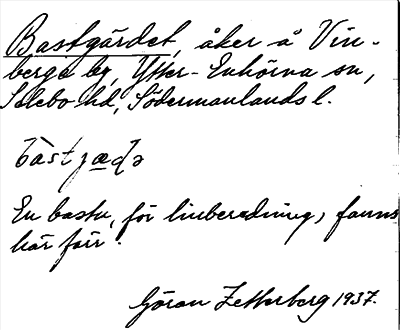 Bastgärdet, åker å Vin-
berga by, Ytter-Enhörna sn,
Selebo hd, Södermanlands l.
En bastu, för linberedning, fanns
här förr.
Göran Zetterberg 1937.